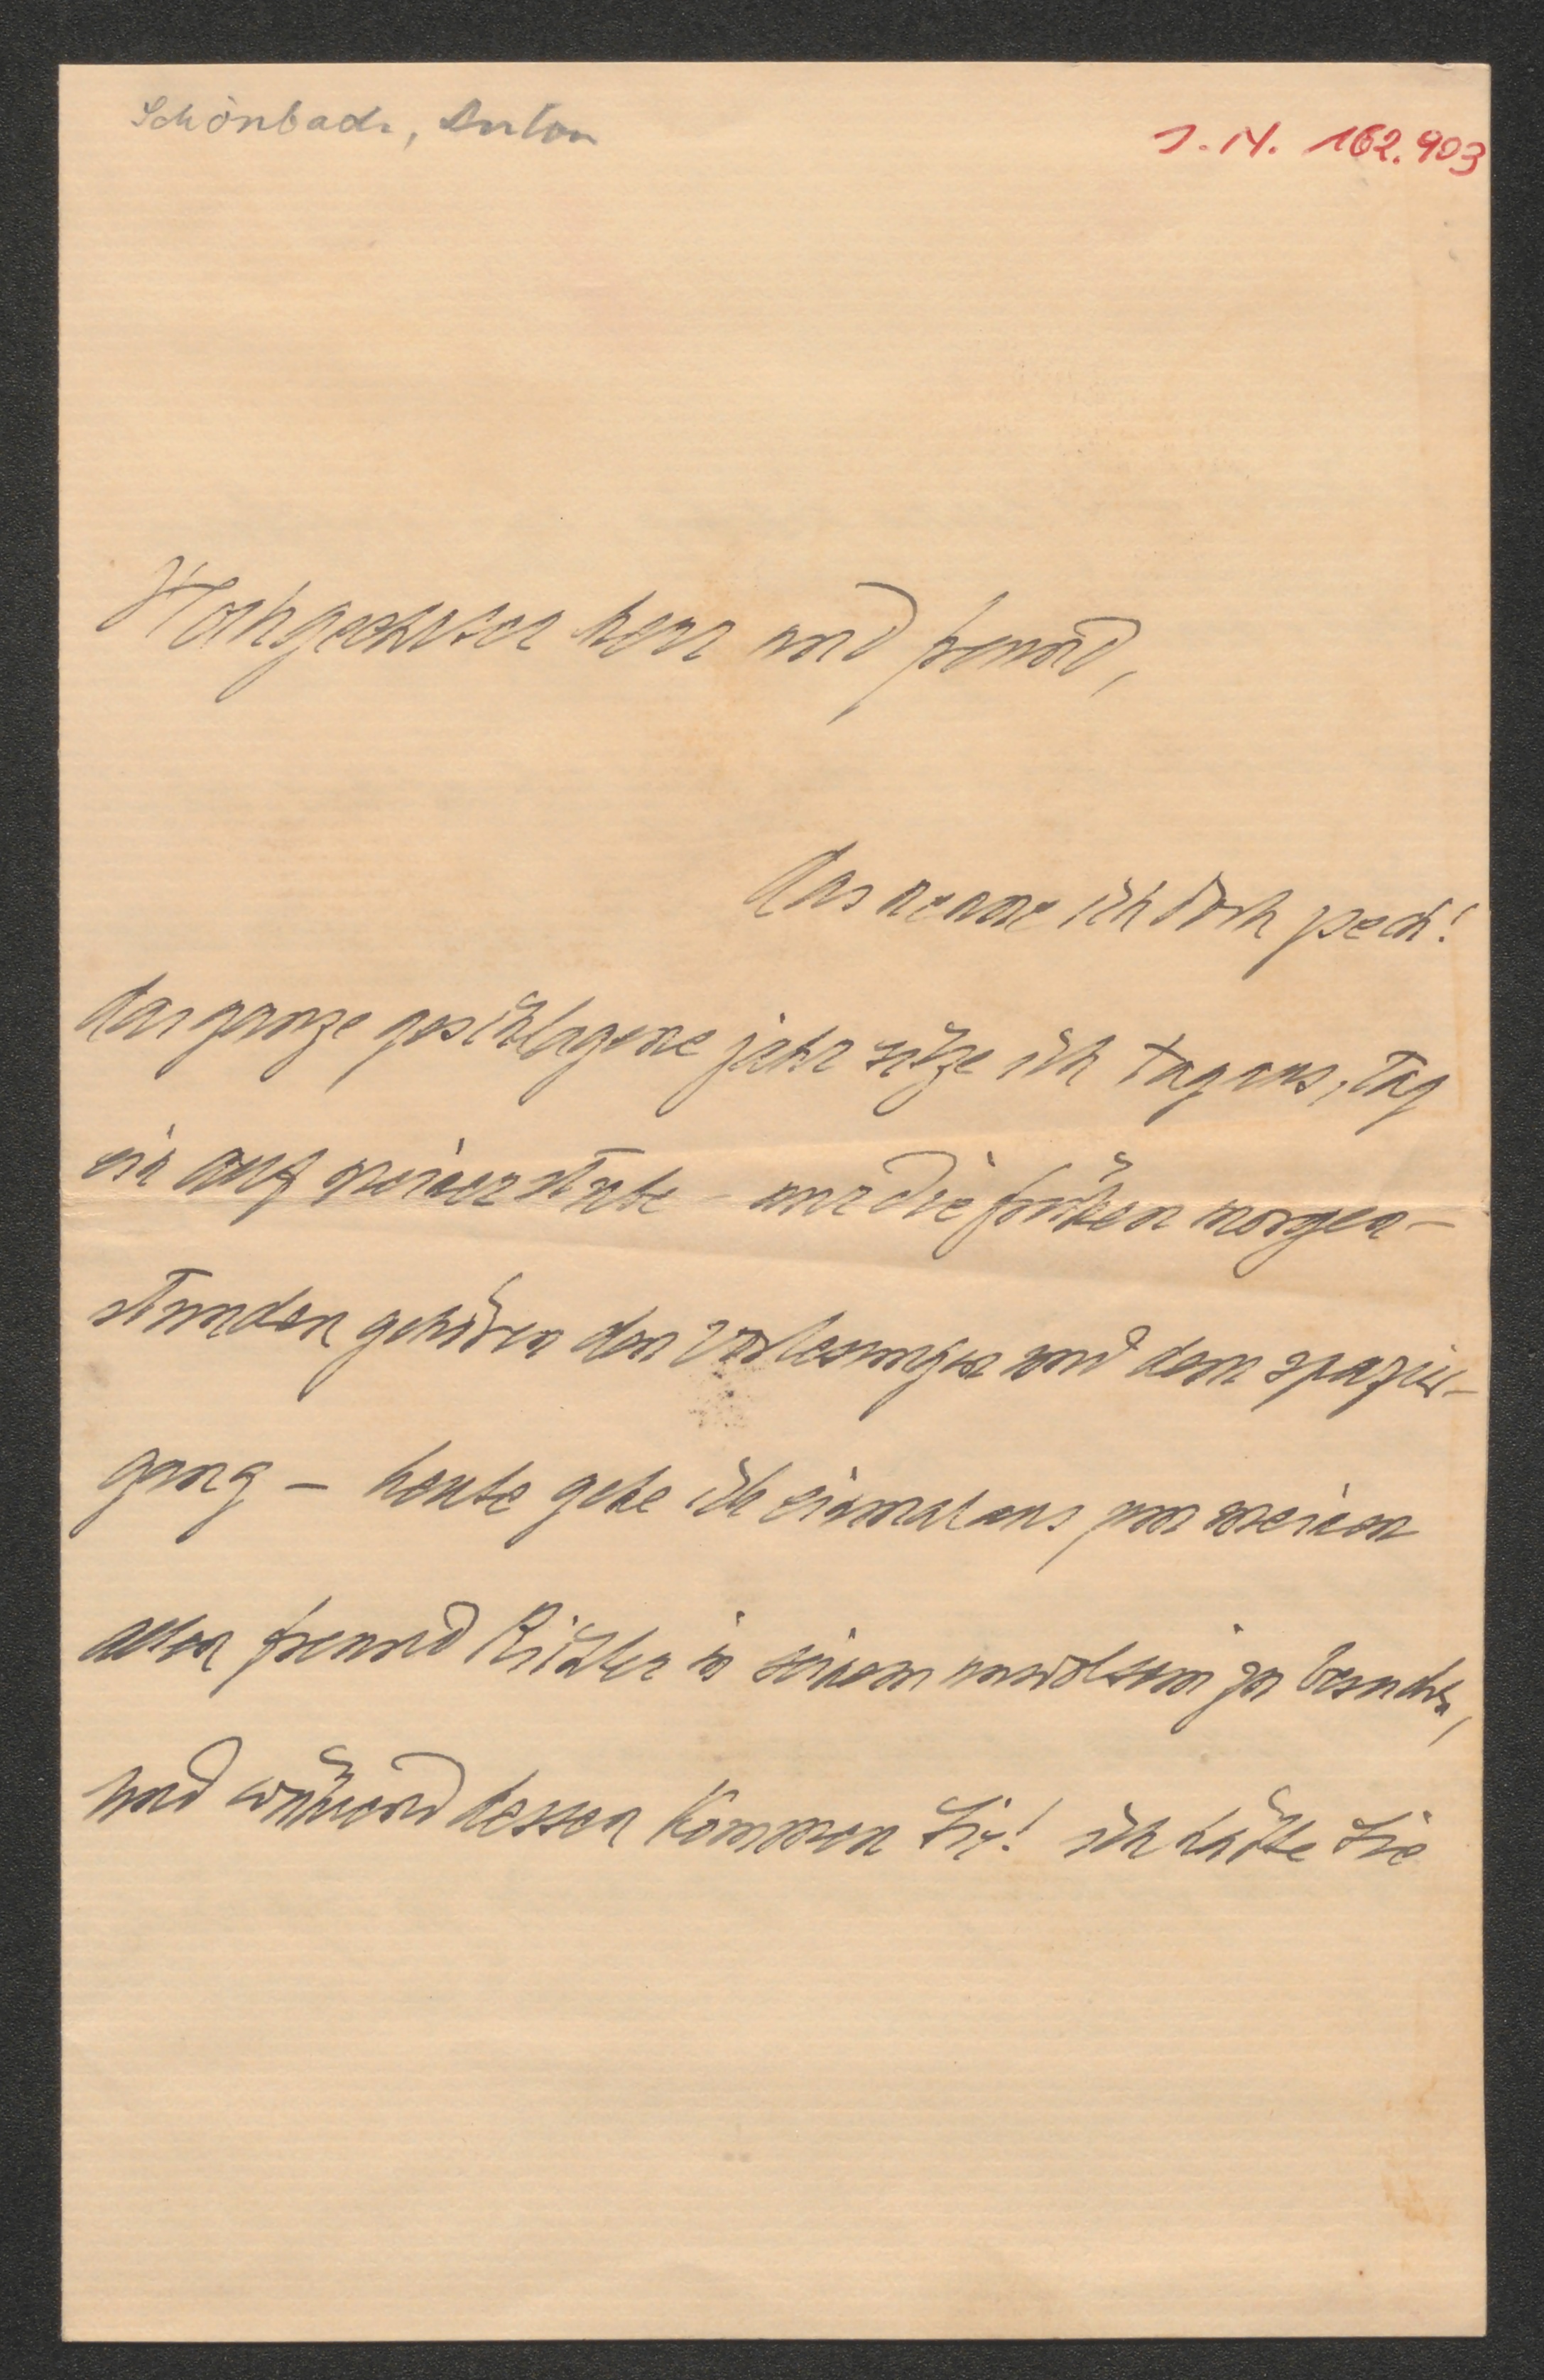 Schönbach, Anton
J. N. 162.903
Hochgeehrter herr und freund,
das nenne ich doch pech!
das ganze geschlagene jahr sitze ich tag aus, tag
ein auf meiner stube – nur die frühen morgen-
stunden gehören den vorlesungen und dem spazier-
gang – heute gehe ich einmal aus, um meinen
alten freund Richter in seinem unwolsein zu besuchen,
und während dessen kommen Sie! ich hätte Sie